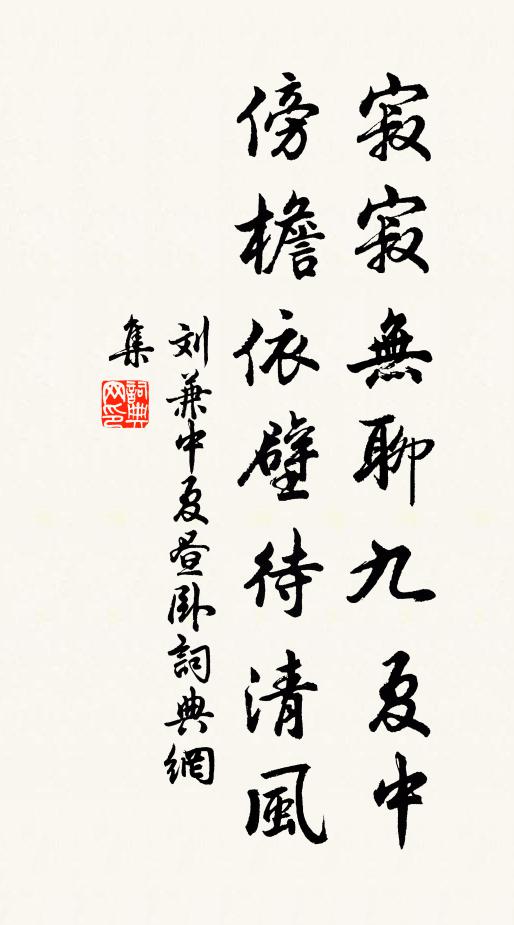 寂寂無聊九夏中
傍檐依壁待清風
刘兼中夏昼卧詞典網
集
詞典
网印